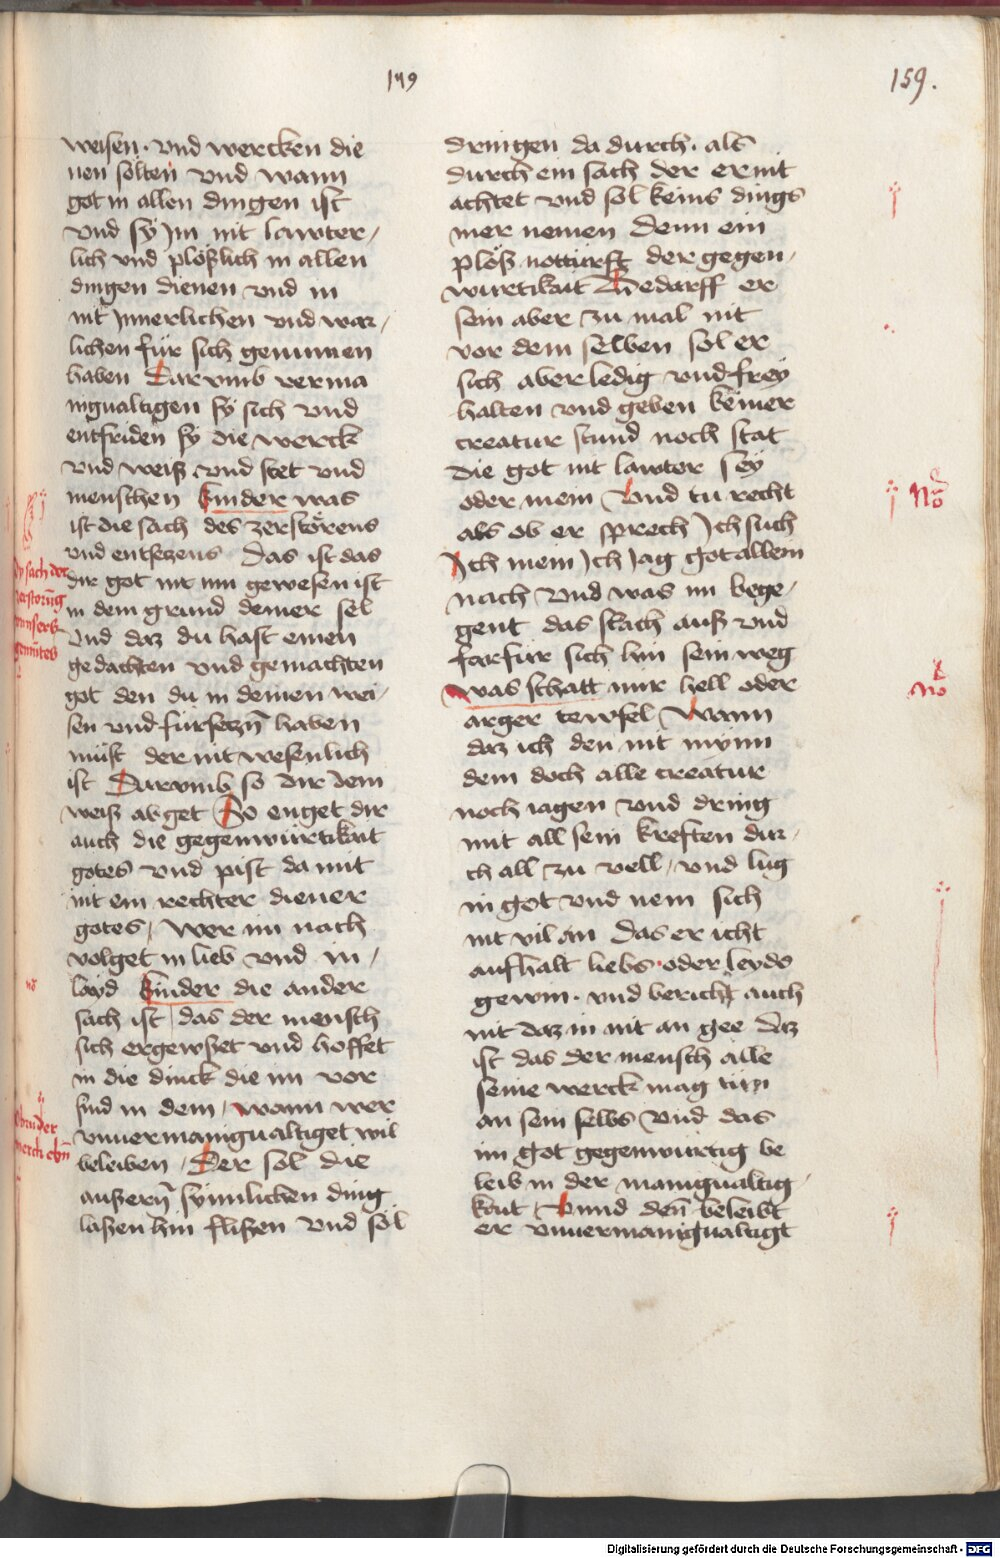 149
159.
weisen. vnd wercken die
nen sölten vnd wann
got in allen dingen ist
vnd sÿ jm nit lawter/
lich vnd plößlich in allen
dingen dienen vnd in
nit jnnerlichen vnd war/
lichen für sich genumen
haben Darvmb verma
nigualtigen sÿ sich vnd
entfriden sÿ die werck
vnd weiß vnd stet vnd
menschen kinder was
ist die sach des zerstörens
vnd entsetzens Das ist das
dir got nit inn gewesen ist
in dem grund deiner sel
vnd daz du hast einen
gedachten vnd gemachten
got den du in deinen wei/
sen vnd fürsetzn̄ haben
müst der nit wesenlich
ist Darvmb so dir dein
weiß abget So enget dir
auch die gegenwürtikait
gotes vnd pist da mit
nit ein rechter diener
gotes/ Wer im nach
volget in lieb vnd in/
layd kinder die ander
sach ist das der mensch
sich ergewset vnd hoffet
in die dinck die im vor
sind in dem/ wann wer
vnuermanigualtiget wil
beleiben/ Der sol die
außern̄ synnlichen ding
laßen hin flißen vnd söl
dy sach der
zerstorūg
vnnsers
gemütes
dringen da durch. als
durch ein sach der er nit
achtet vnd sol keins dings
mer nemen denn ein
plöß notturft der gegen/
wurtikait Bedarff er
sein aber zu mal nit
vor dem selben sol er
sich aber ledig vnd freÿ
halten vnd geben keiner
creatur stund noch stat
die got nit lawter seÿ
oder mein Vnd tu recht
als ob er sprech Jch such
Jch mein Jch jag got allein
nach Vnd was im bege/
gent das slach auß vnd
far für sich hin sein weg
was schatt mir hell oder
arger tewfel Wann
daz ich den nit mÿnn
dem doch alle creatur
noch iagen vnd dring
mit all sein kreften dur/
ch all zu vell/ vnd lug
in got vnd nem sich
nit vil an Das er icht
aufhalt liebs oder leyds
gewin. vnd bericht auch
nit daz in nit an gee Daz
ist das der mensch alle
seine werck mag tun
an sein selbs Vnd das
im got gegenwürtig be
leib in der manigualtig/
kait Vnnd den̄ beleibt
er vnuermanigualtigt
No
No